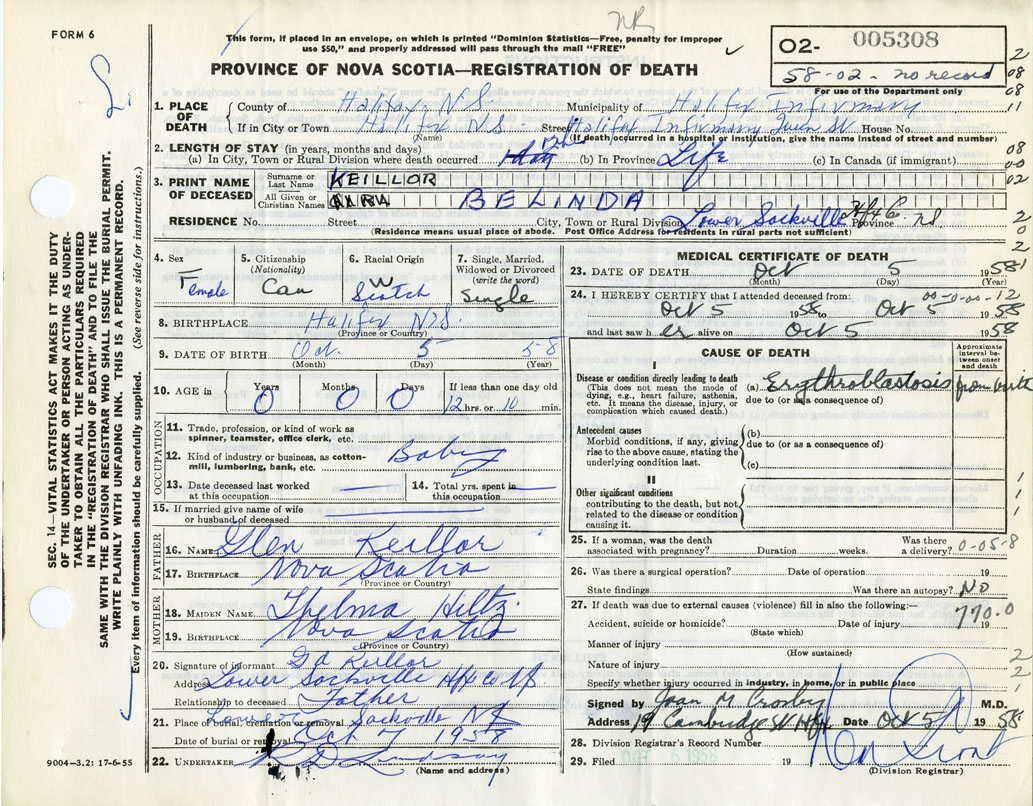 NR
FORM 6
This form, if placed in an envelope, on which is printed "Dominion Statistics—Free, penalty for improper
use $50," and properly addressed will pass through the mail "FREE"
02- 005308
58-02- no record
For use of the Department only
PROVINCE OF NOVA SCOTIA—REGISTRATION OF DEATH
1. PLACE OF DEATH
County of Halifax, NS- Municipality of Halifax Infirmary
If in City or Town Halifax NS- Street Halifax Infirmary Queen St. House No.
(Name) (If death occurred in a hospital or institution, give the name instead of street and number)
2. LENGTH OF STAY (in years, months and days)
(a) In City, Town or Rural Division where death occurred (b) In Province Life (c) In Canada (if immigrant)
3. PRINT NAME OF DECEASED
Surname or Last Name KEILLOR
All Given or Christian Names BELINDA
RESIDENCE No. Street City, Town or Rural Division Lower Sackville Hfx Co. Province NS
(Residence means usual place of abode. Post Office Address for residents in rural parts not sufficient)
4. Sex Female
5. Citizenship (Nationality) Can
6. Racial Origin W Scotch
7. Single, Married, Widowed or Divorced (write the word) Single
8. BIRTHPLACE Halifax NS.
(Province or Country)
9. DATE OF BIRTH Oct. 5 58
(Month) (Day) (Year)
10. AGE in Years 0 Months 0 Days 0 If less than one day old 12 hrs. or 10 min.
OCCUPATION
11. Trade, profession, or kind of work as spinner, teamster, office clerk, etc.
12. Kind of industry or business, as cotton-mill, lumbering, bank, etc. Baby
13. Date deceased last worked at this occupation
14. Total yrs. spent in this occupation
15. If married give name of wife or husband of deceased
FATHER
16. NAME Glen Keillor
17. BIRTHPLACE Nova Scotia
(Province or Country)
MOTHER
18. MAIDEN NAME. Thelma Hiltz.
19. BIRTHPLACE Nova Scotia
(Province or Country)
20. Signature of informant G d Keillor
Address Lower Sackville Hfx Co NS
Relationship to deceased Father
21. Place of burial, cremation or removal Lower Sackville NS
Date of burial or removal Oct 7 1958
22. UNDERTAKER Lindsay
(Name and address)
9004—3.2: 17-6-55
MEDICAL CERTIFICATE OF DEATH
23. DATE OF DEATH Oct 5 1958
(Month) (Day) (Year)
00-0-00-12
24. I HEREBY CERTIFY that I attended deceased from:
Oct 5 1958 to Oct 5 1958
and last saw her alive on Oct 5 1958
CAUSE OF DEATH
Approximate interval between onset and death
I
Disease or condition directly leading to death
(This does not mean the mode of dying, e.g., heart failure, asthenia, etc. It means the disease, injury, or complication which caused death.)
(a) Erythroblastosis from birth
due to (or as a consequence of)
Antecedent causes
Morbid conditions, if any, giving rise to the above cause, stating the underlying condition last.
(b)
due to (or as a consequence of)
(c)
II
Other significant conditions
contributing to the death, but not related to the disease or condition causing it.
25. If a woman, was the death associated with pregnancy? Duration weeks. Was there a delivery? 0-05-8
26. Was there a surgical operation? Date of operation 19
State findings Was there an autopsy? No
27. If death was due to external causes (violence) fill in also the following:—
770.0
Accident, suicide or homicide? Date of injury 19
(State which)
Manner of injury
(How sustained)
Nature of injury
Specify whether injury occurred in industry, in home, or in public place
Signed by Joan M Crosby M.D.
Address 19 Cambridge St Hfx Date Oct 5 1958
28. Division Registrar's Record Number
29. Filed OCT 6 1958 19
(Division Registrar)
SEC. 14—VITAL STATISTICS ACT MAKES IT THE DUTY
OF THE UNDERTAKER OR PERSON ACTING AS UNDER-
TAKER TO OBTAIN ALL THE PARTICULARS REQUIRED
IN THE "REGISTRATION OF DEATH" AND TO FILE THE
SAME WITH THE DIVISION REGISTRAR WHO SHALL ISSUE THE BURIAL PERMIT.
WRITE PLAINLY WITH UNFADING INK. THIS IS A PERMANENT RECORD.
Every item of information should be carefully supplied. (See reverse side for instructions.)
2
08
08
11
08
0-0
02
2
0
2
1
1
1
1
2
2
1